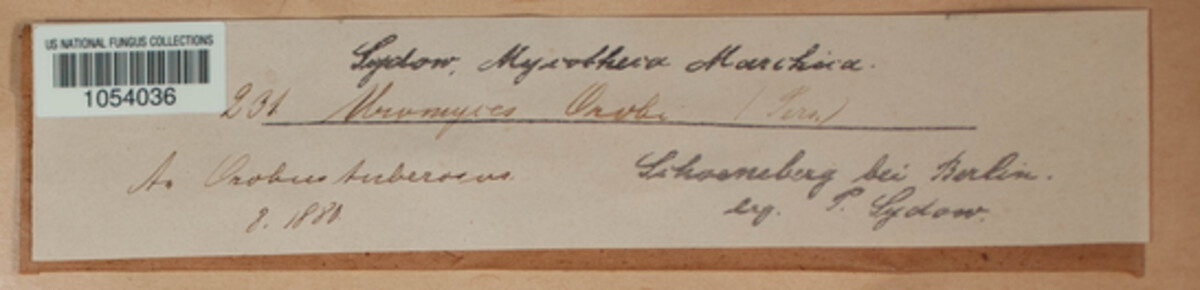 US NATIONAL FUNGUS COLLECTIONS
1054036
Sydow, Mycotheca Marchica.
231 Uromyces Orobi (Pers.)
An Orobus tuberosus.
8. 1880
Schoeneberg bei Berlin.
leg. P. Sydow.